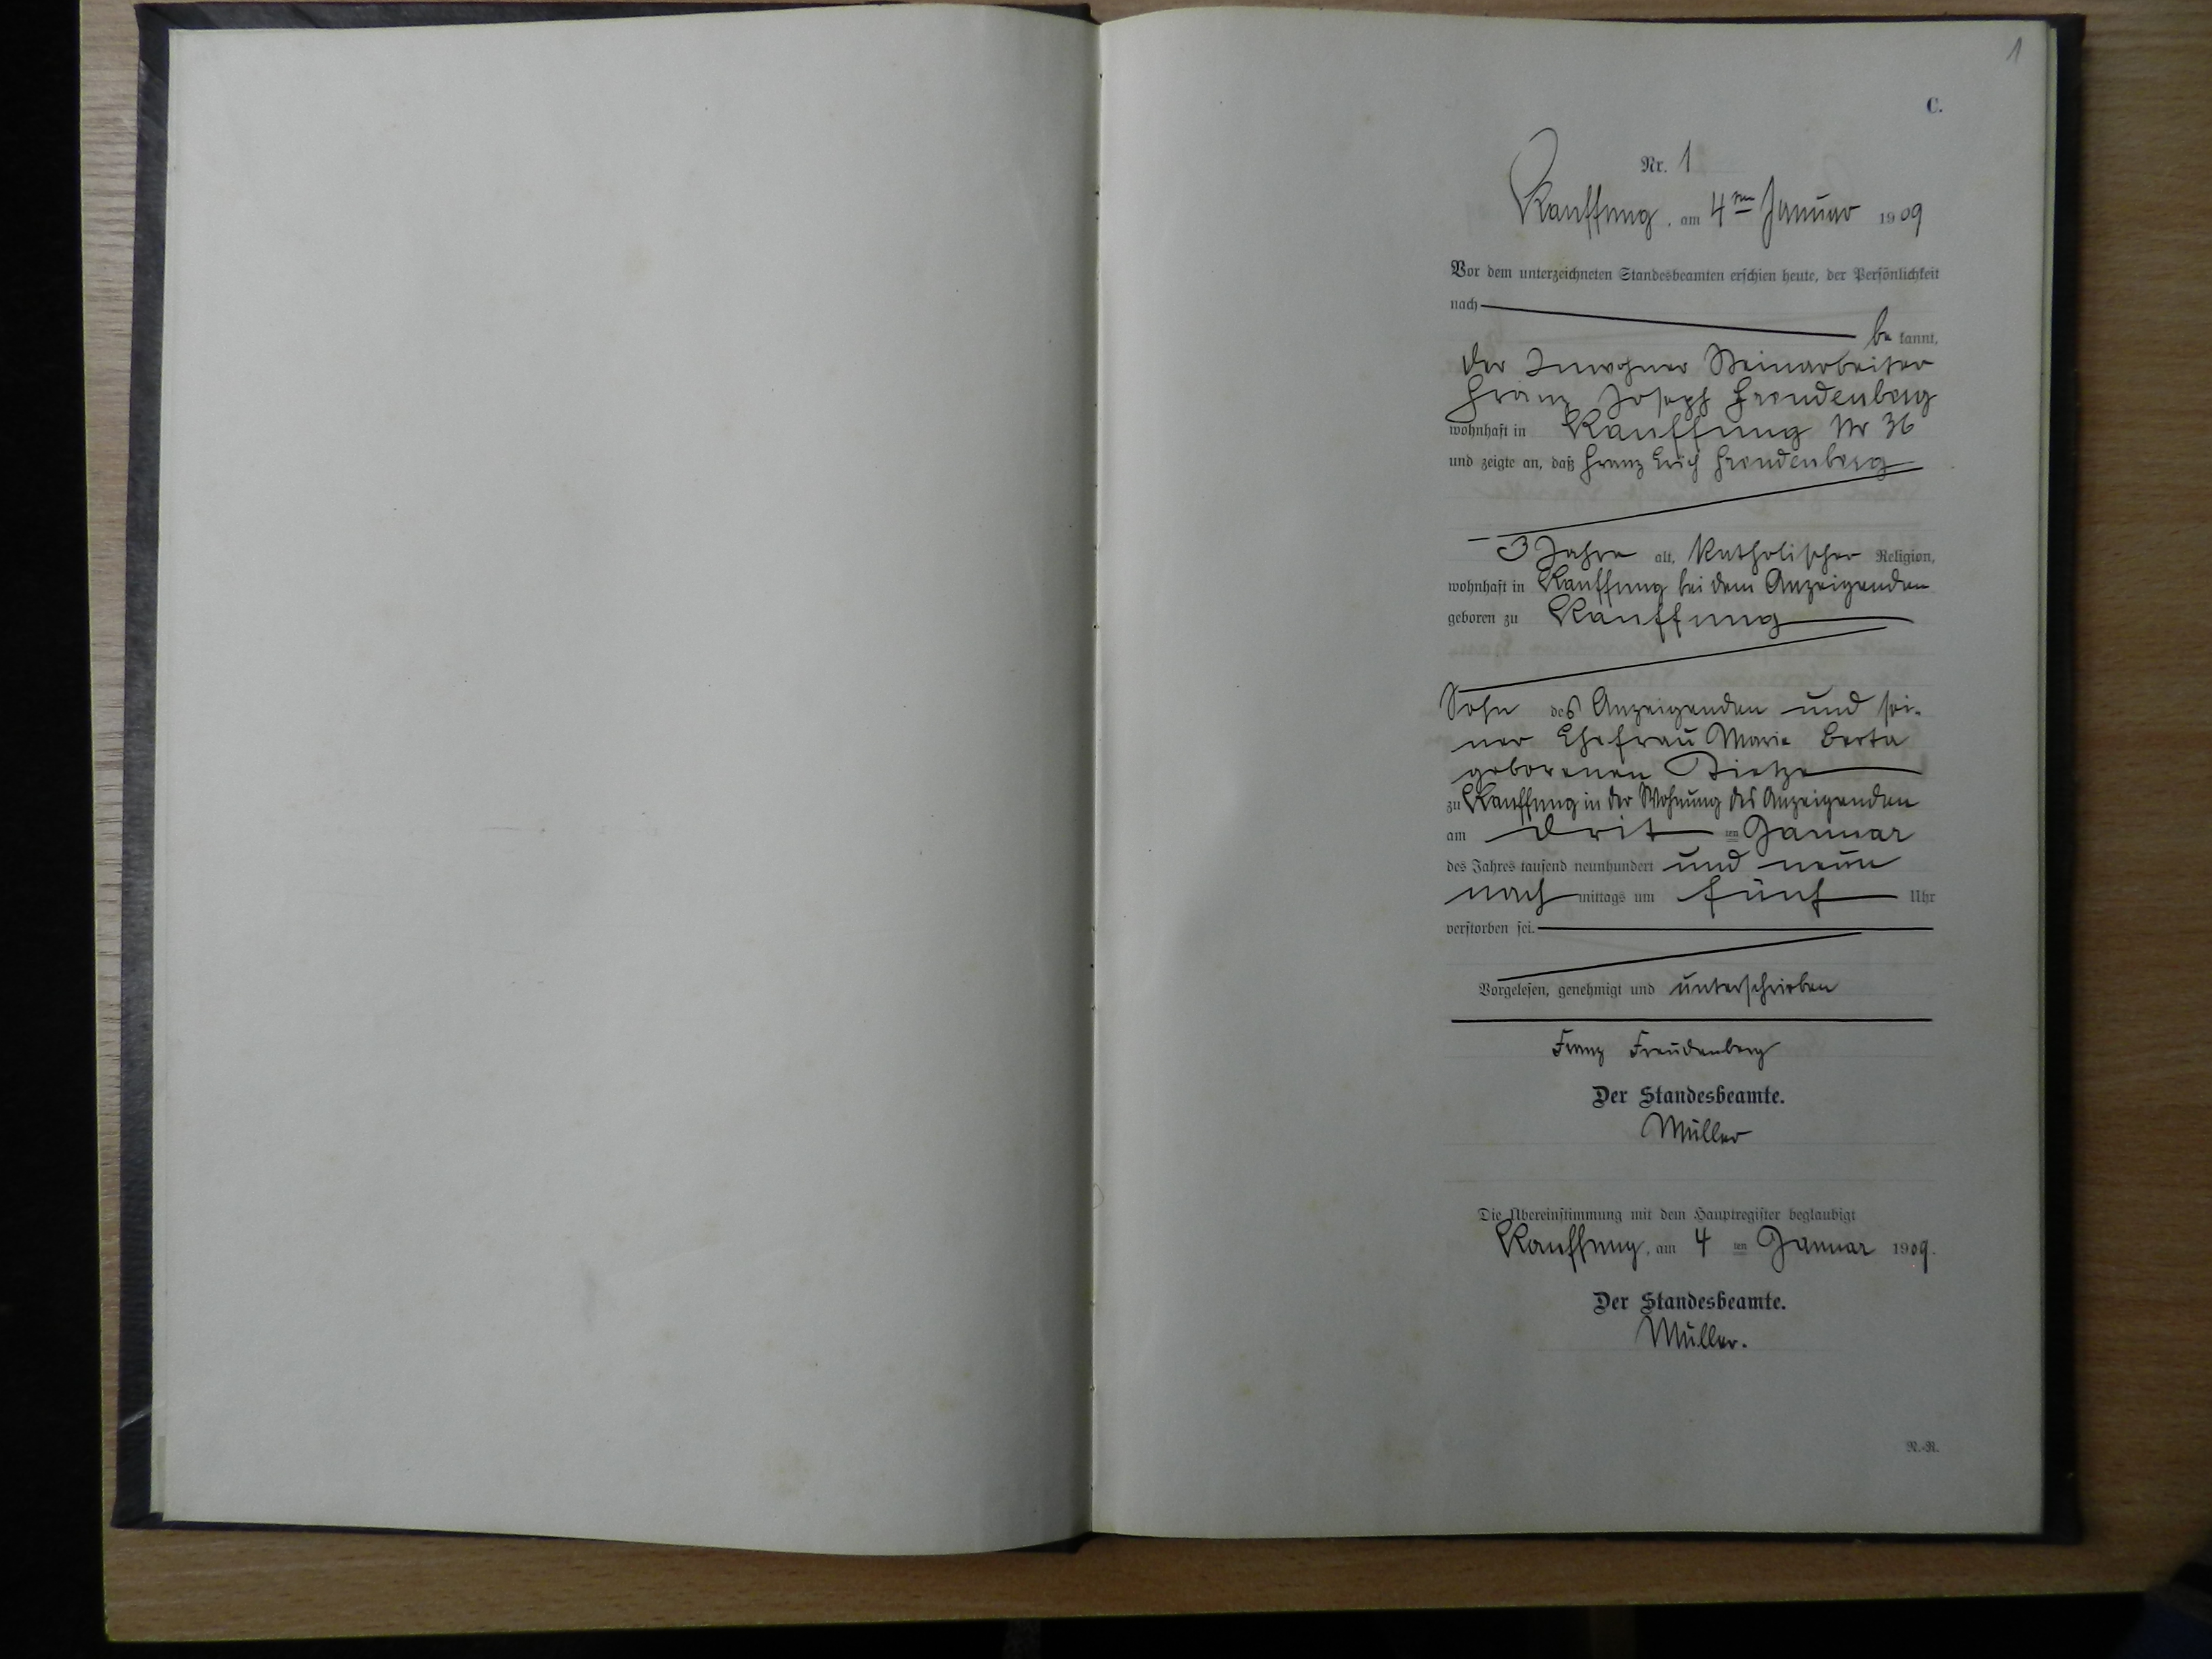 1
C.
Nr. 1
Kauffung, am 4ten Januar 1909
Vor dem unterzeichneten Standesbeamten erschien heute, der Persönlichkeit
nach
be kannt,
der Inwohner Steinarbeiter
Franz Joseph Freudenberg
wohnhaft in Kauffung Nr 36
und zeigte an, daß Franz Erich Freudenberg
3 Jahre alt, katholischer Religion,
wohnhaft in Kauffung bei dem Anzeigenden
geboren zu Kauffung
Sohn des Anzeigenden und sei-
ner Ehefrau Marie Berta
geborenen Dietze
zu Kauffung in der Wohnung des Anzeigenden
am drit ten Januar
des Jahres tausend neunhundert und neun
nach mittags um fünf Uhr
verstorben sei.
Vorgelesen, genehmigt und unterschrieben
Franz Freudenberg
Der Standesbeamte.
Müller
Die Übereinstimmung mit dem Hauptregister beglaubigt
Kauffung, am 4 ten Januar 1909.
Der Standesbeamte.
Müller.
N.-R.